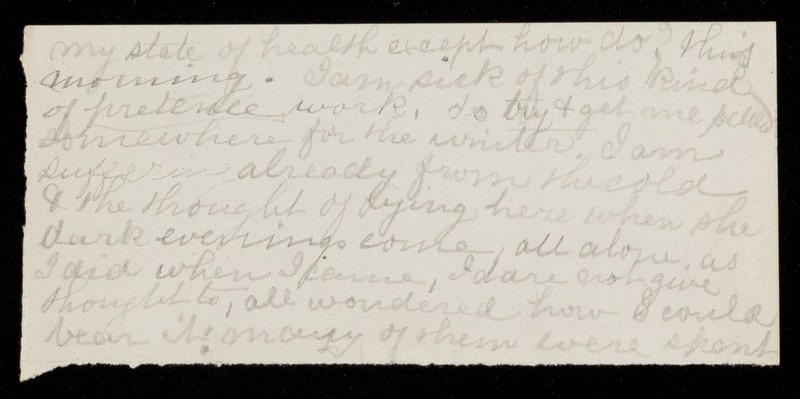 my state of health except how do? this
morning. I am sick of this kind
of pretence work. do try & get me settled
somewhere for the winter. I am
suffering already from the cold
& the thought of dying here when the
dark evenings come, all alone as
I did when I came, I dare not give
thought to, all wondered how I could
bear it: many of them were spent